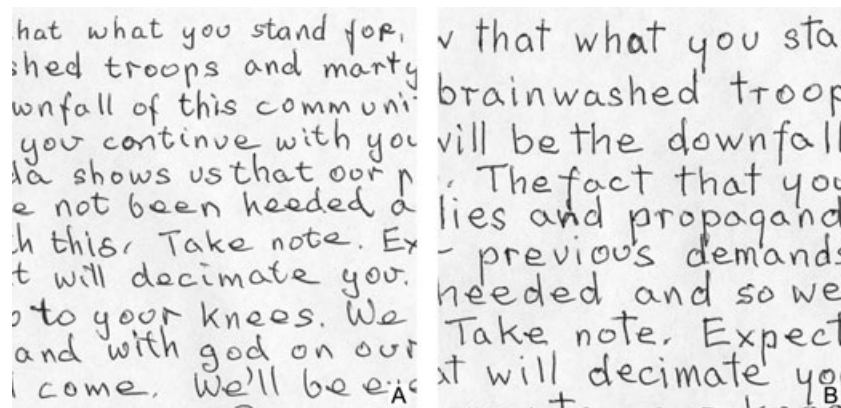 hat what you stand for,
shed troops and marty
wnfall of this communi
you continue with you
da shows us that our p
e not been heeded a
h this, Take note. Ex
t will decimate you.
to your knees. We
and with god on our
come. We'll be
A
v that what you sta
brainwashed troop
vill be the downfall
. The fact that you
lies and propagand
previous demands
heeded and so we
Take note. Expect
at will decimate you
B